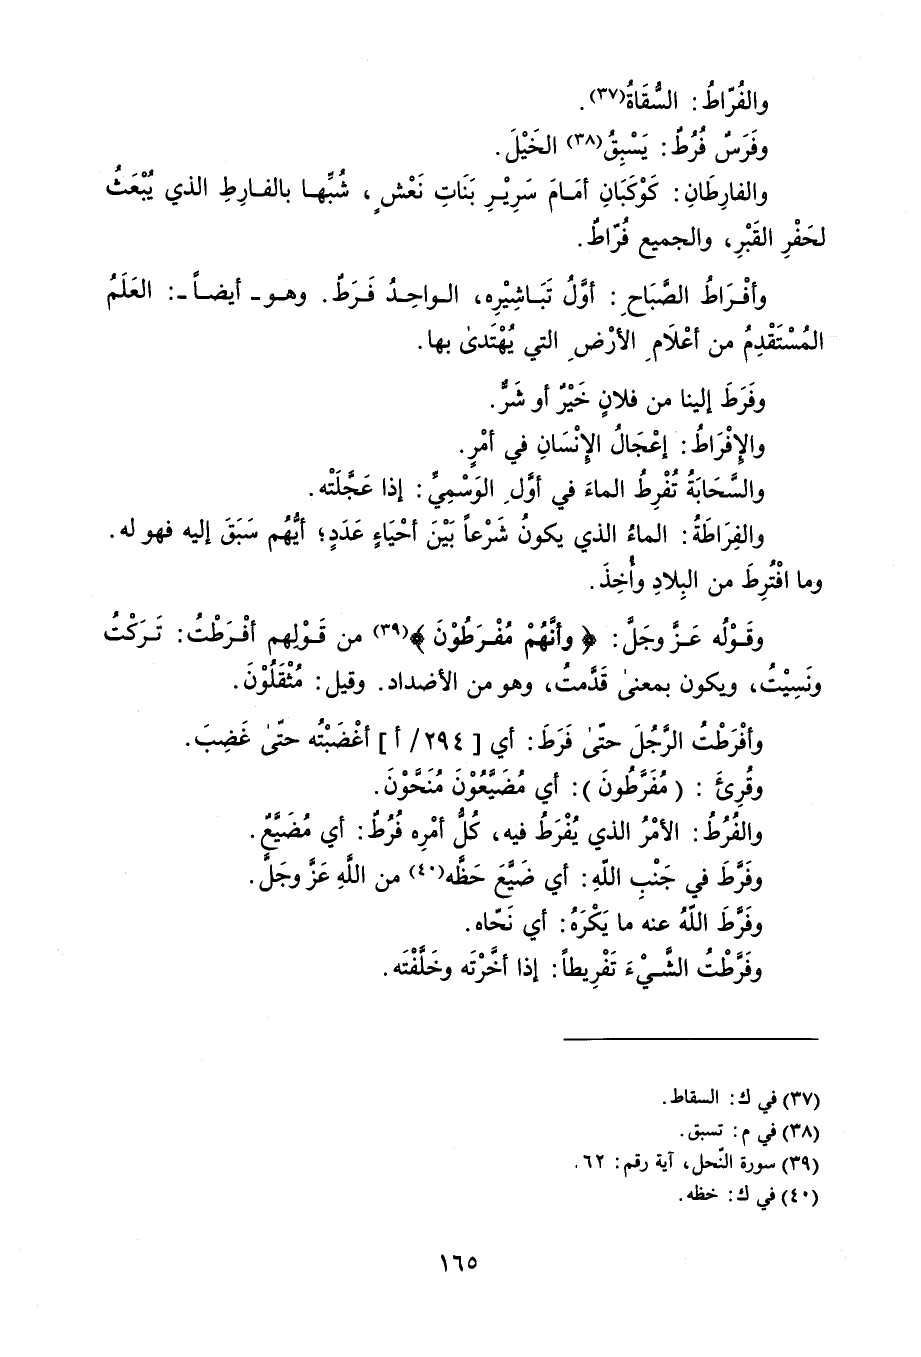 والفُرّاطُ: السُّقَاةُ(٣٧).
وفَرَسٌ فُرُطٌ: يَسْبِقُ(٣٨) الخَيْلَ.
والفارِطَانِ: كَوْكَبَانِ أمَامَ سَرِيْرِ بَنَاتِ نَعْشٍ، شُبِّهـا بالفـارِطِ الذي يُبْعَثُ
لحَفْرِ القَبْرِ، والجميع فُرّاطٌ.
وأفْـرَاطُ الصَّبَاحِ: أوَّلُ تَبَـاشِيْرِه، الـواحِـدُ فَـرَطٌ. وهـو ـ أيضـاً ـ: العَلَمُ
المُسْتَقْدِمُ من أعْلَامِ الأرْضِ التي يُهْتَدىٰ بها.
وفَرَطَ إلينا من فلانٍ خَيْرٌ أو شَرٌّ.
والإِفْرَاطُ: إعْجَالُ الإِنْسَانِ في أمْرٍ.
والسَّحَابَةُ تُفْرِطُ الماءَ في أوَّلِ الوَسْمِيِّ: إذا عَجَّلَتْه.
والفِرَاطَةُ: الماءُ الذي يكونُ شَرْعاً بَيْنَ أحْيَاءٍ عَدَدٍ؛ أيُّهُم سَبَقَ إليه فهو له.
وما افْتُرِطَ من البِلادِ وأُخِذَ.
وقَـوْلُه عَـزَّ وجَلَّ: ﴿ وأنَّهُمْ مُفْـرَطُوْنَ ﴾(٣٩) من قَـوْلِهم أفْـرَطْتُ: تَـرَكْتُ
ونَسِيْتُ، ويكون بمعنىٰ قَدَّمتُ، وهو من الأضداد. وقيل: مُثْقَلُوْنَ.
وأفْرَطْتُ الرَّجُلَ حتّىٰ فَرَطَ: أي [٢٩٤/ أ] أغْضَبْتُه حتّىٰ غَضِبَ.
وقُرِئَ : (مُفَرَّطُونَ): أي مُضَيَّعُوْنَ مُنَحَّوْنَ.
والفُرُطُ: الأمْرُ الذي يُفْرَطُ فيه، كُلُّ أمْرِه فُرُطٌ: أي مُضَيَّعٌ.
وفَرَّطَ في جَنْبِ اللّهِ: أي ضَيَّعَ حَظَّه(٤٠) من اللَّهِ عَزَّ وجَلَّ.
وفَرَّطَ اللّهُ عنه ما يَكْرَهُ: أي نَحّاه.
وفَرَّطْتُ الشَّيْءَ تَفْرِيطاً: إذا أخَّرْتَه وخَلَّفْتَه.
(٣٧) في ك: السقاط.
(٣٨) في م: تسبق.
(٣٩) سورة النّحل، آية رقم: ٦٢.
(٤٠) في ك: خظه.
١٦٥